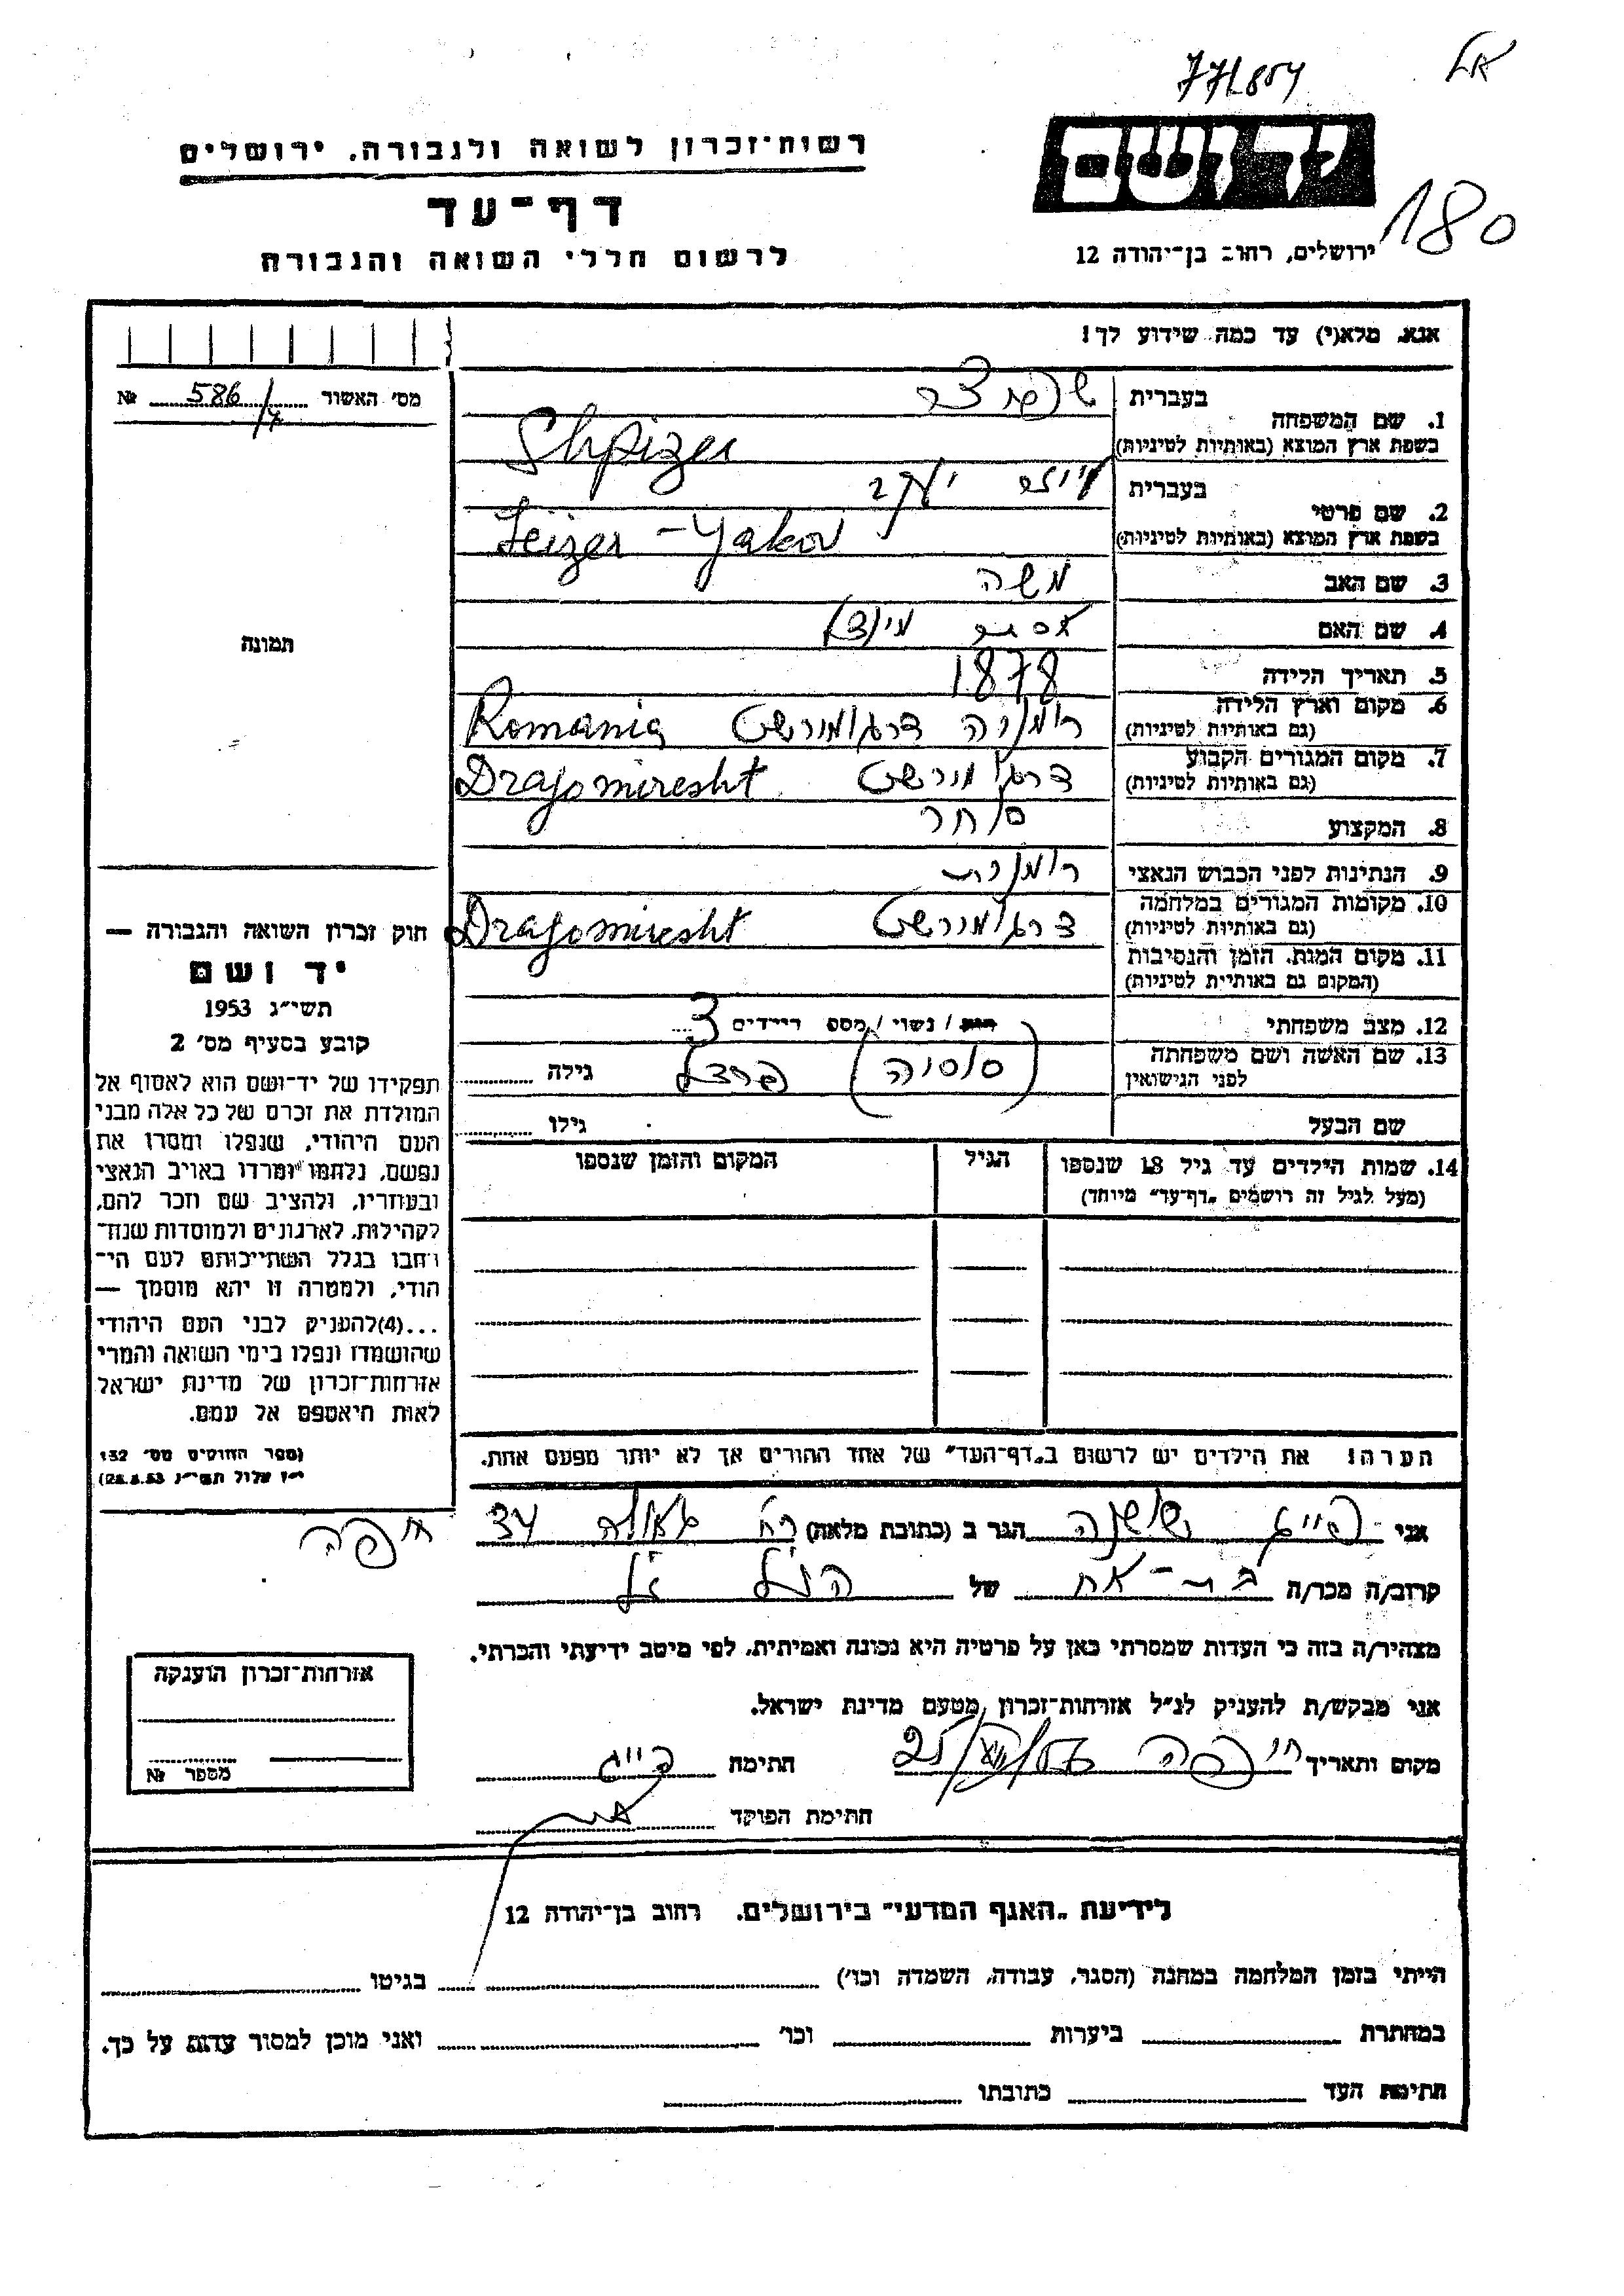 771804
180
יד ושם
ירושלים, רחוב בן־יהודה 12
רשות־זכרון לשואה ולגבורה, ירושלים
דף־עד
לרשום חללי השואה והגבורה
אנא, מלא(י) עד כמה שידוע לך!
מס' האשור 586/7 №
תמונה
1. שם המשפחה בעברית שפיצר
בשפת ארץ המוצא (באותיות לטיניות) Shpizer
2. שם פרטי בעברית לייזר יעקב
בשפת ארץ המוצא (באותיות לטיניות) Leizer - Yakov
3. שם האב משה
4. שם האם אסתר
5. תאריך הלידה 1878
6. מקום וארץ הלידה רומניה דרגומירשט Romania
(גם באותיות לטיניות)
7. מקום המגורים הקבוע דרגומירשט Dragomiresht
(גם באותיות לטיניות)
8. המקצוע סוחר
9. הנתינות לפני הכבוש הנאצי רומנית
10. מקומות המגורים במלחמה דרגומירשט Dragomiresht
(גם באותיות לטיניות)
11. מקום המות, הזמן והנסיבות
(המקום גם באותיות לטיניות)
12. מצב משפחתי רווק / נשוי / מספר הילדים 3
13. שם האשה ושם משפחתה לפני הנישואין (סוסיה) פרצל גילה
שם הבעל גילו
14. שמות הילדים עד גיל 18 שנספו הגיל המקום והזמן שנספו
(מעל לגיל זה רושמים „דף־עד" מיוחד)
הערה! את הילדים יש לרשום ב„דף־העד" של אחד ההורים אך לא יותר מפעם אחת.
חוק זכרון השואה והגבורה —
יד ושם
תשי"ג 1953
קובע בסעיף מס' 2
תפקידו של יד־ושם הוא לאסוף אל
המולדת את זכרם של כל אלה מבני
העם היהודי, שנפלו ומסרו את
נפשם, נלחמו ומרדו באויב הנאצי
ובעוזריו, ולהציב שם וזכר להם,
לקהילות, לארגונים ולמוסדות שנח־
רבו בגלל השתייכותם לעם הי־
הודי, ולמטרה זו יהא מוסמך —
...(4)להעניק לבני העם היהודי
שהושמדו ונפלו בימי השואה והמרי
אזרחות־זכרון של מדינת ישראל
לאות היאספם אל עמם.
(ספר החוקים מס' 132
י"ז אלול תשי"ג 28.8.53)
אני פייג שושנה הגר ב (כתובת מלאה) רח' גאולה 34
חיפה
קרוב/ה מכר/ה בת-אח של הנ"ל
מצהיר/ה בזה כי העדות שמסרתי כאן על פרטיה היא נכונה ואמיתית, לפי מיטב ידיעתי והכרתי.
אני מבקש/ת להעניק לנ"ל אזרחות־זכרון מטעם מדינת ישראל.
מקום ותאריך חיפה חתימה פייג
חתימת הפוקד
אזרחות־זכרון הוענקה
מספר №
לידיעת „האגף המדעי" בירושלים, רחוב בן־יהודה 12
הייתי בזמן המלחמה במחנה (הסגר, עבודה, השמדה וכו') בגיטו
במחתרת ביערות וכו' ואני מוכן למסור עדות על כך.
חתימת העד כתובתו